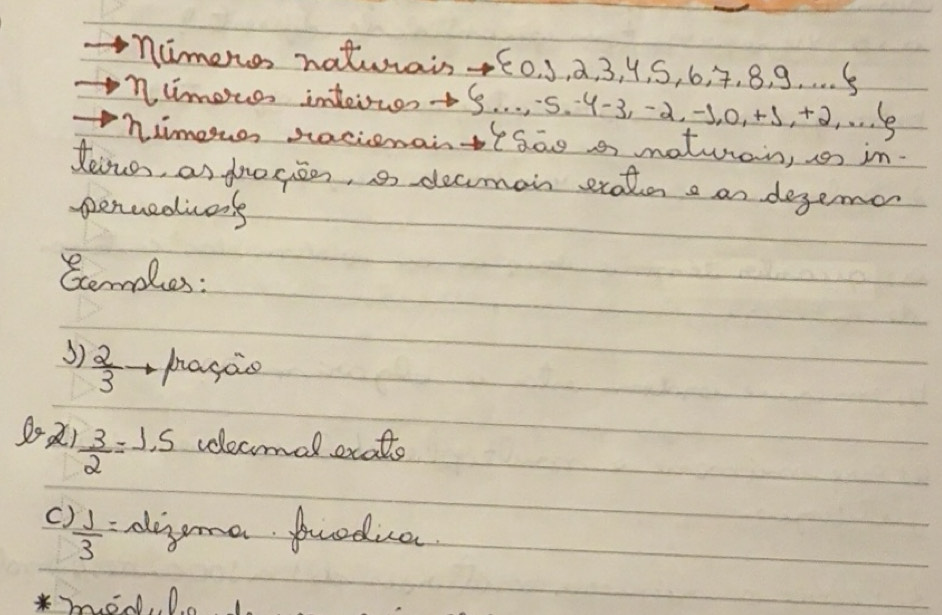 → Números naturais → {0,1,2,3,4,5,6,7,8,9....}
→ Números inteiros → {...,-5.-4-3,-2,-1,0,+1,+2,...}
→ Números racionais → {São os naturais, os in-
teiros, as frações, os decimais exatos e as dezemas
periodicas}
Exemplos:
1) 2/3 → fração
b 2) 3/2 = 1,5 decimal exato
c) 1/3 = dízema periodica.
* módulo de